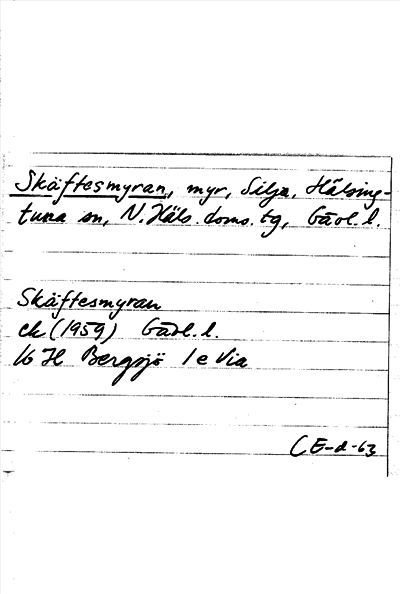 Skäftesmyran, myr, Silja, Hälsing-
tuna sn, N. Häls. doms. tg, Gävl. l.
Skäftesmyran
ek (1959) Gävl. l.
16 H Bergsjö 1 e Via
CE-d-63